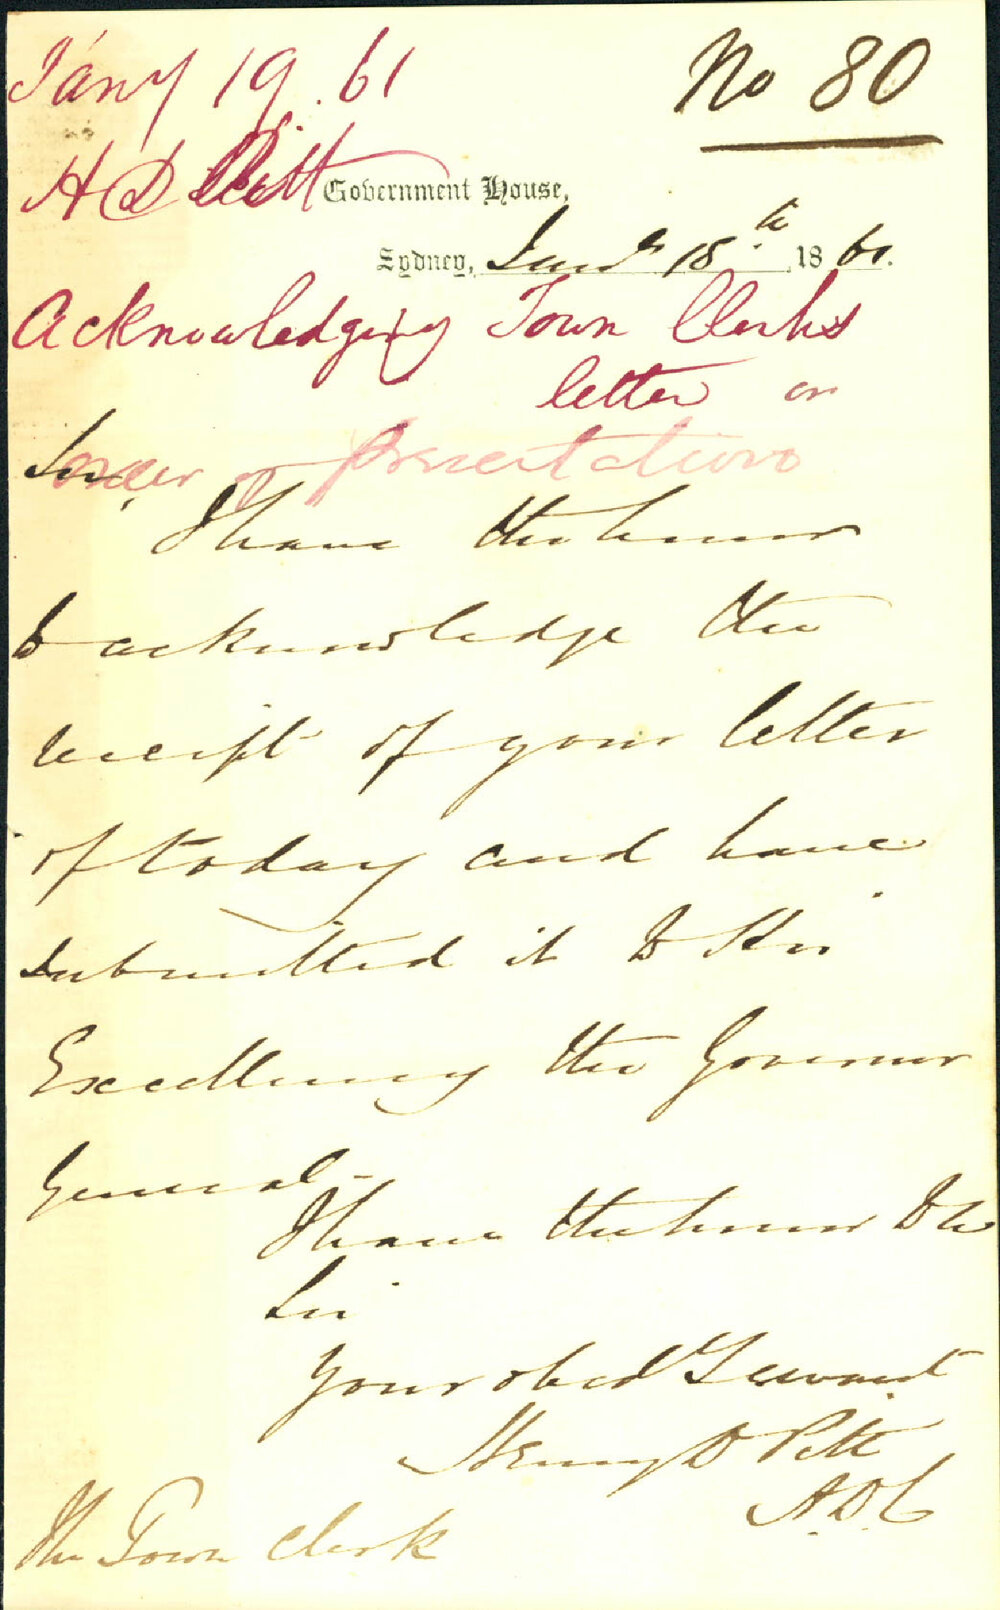 Jany 19. 61
No 80
H D Pitt
Government House,
Sydney, Jany 18th 1861.
Acknowledging Town Clerks
letter on
order of presentations
Sir,
I have the honor
to acknowledge the
receipt of your letter
of today and have
submitted it to His
Excellency the Governor
General -
I have the honor to be
Sir
Your obed Servant
Henry D Pitt
A.D.C
The Town Clerk